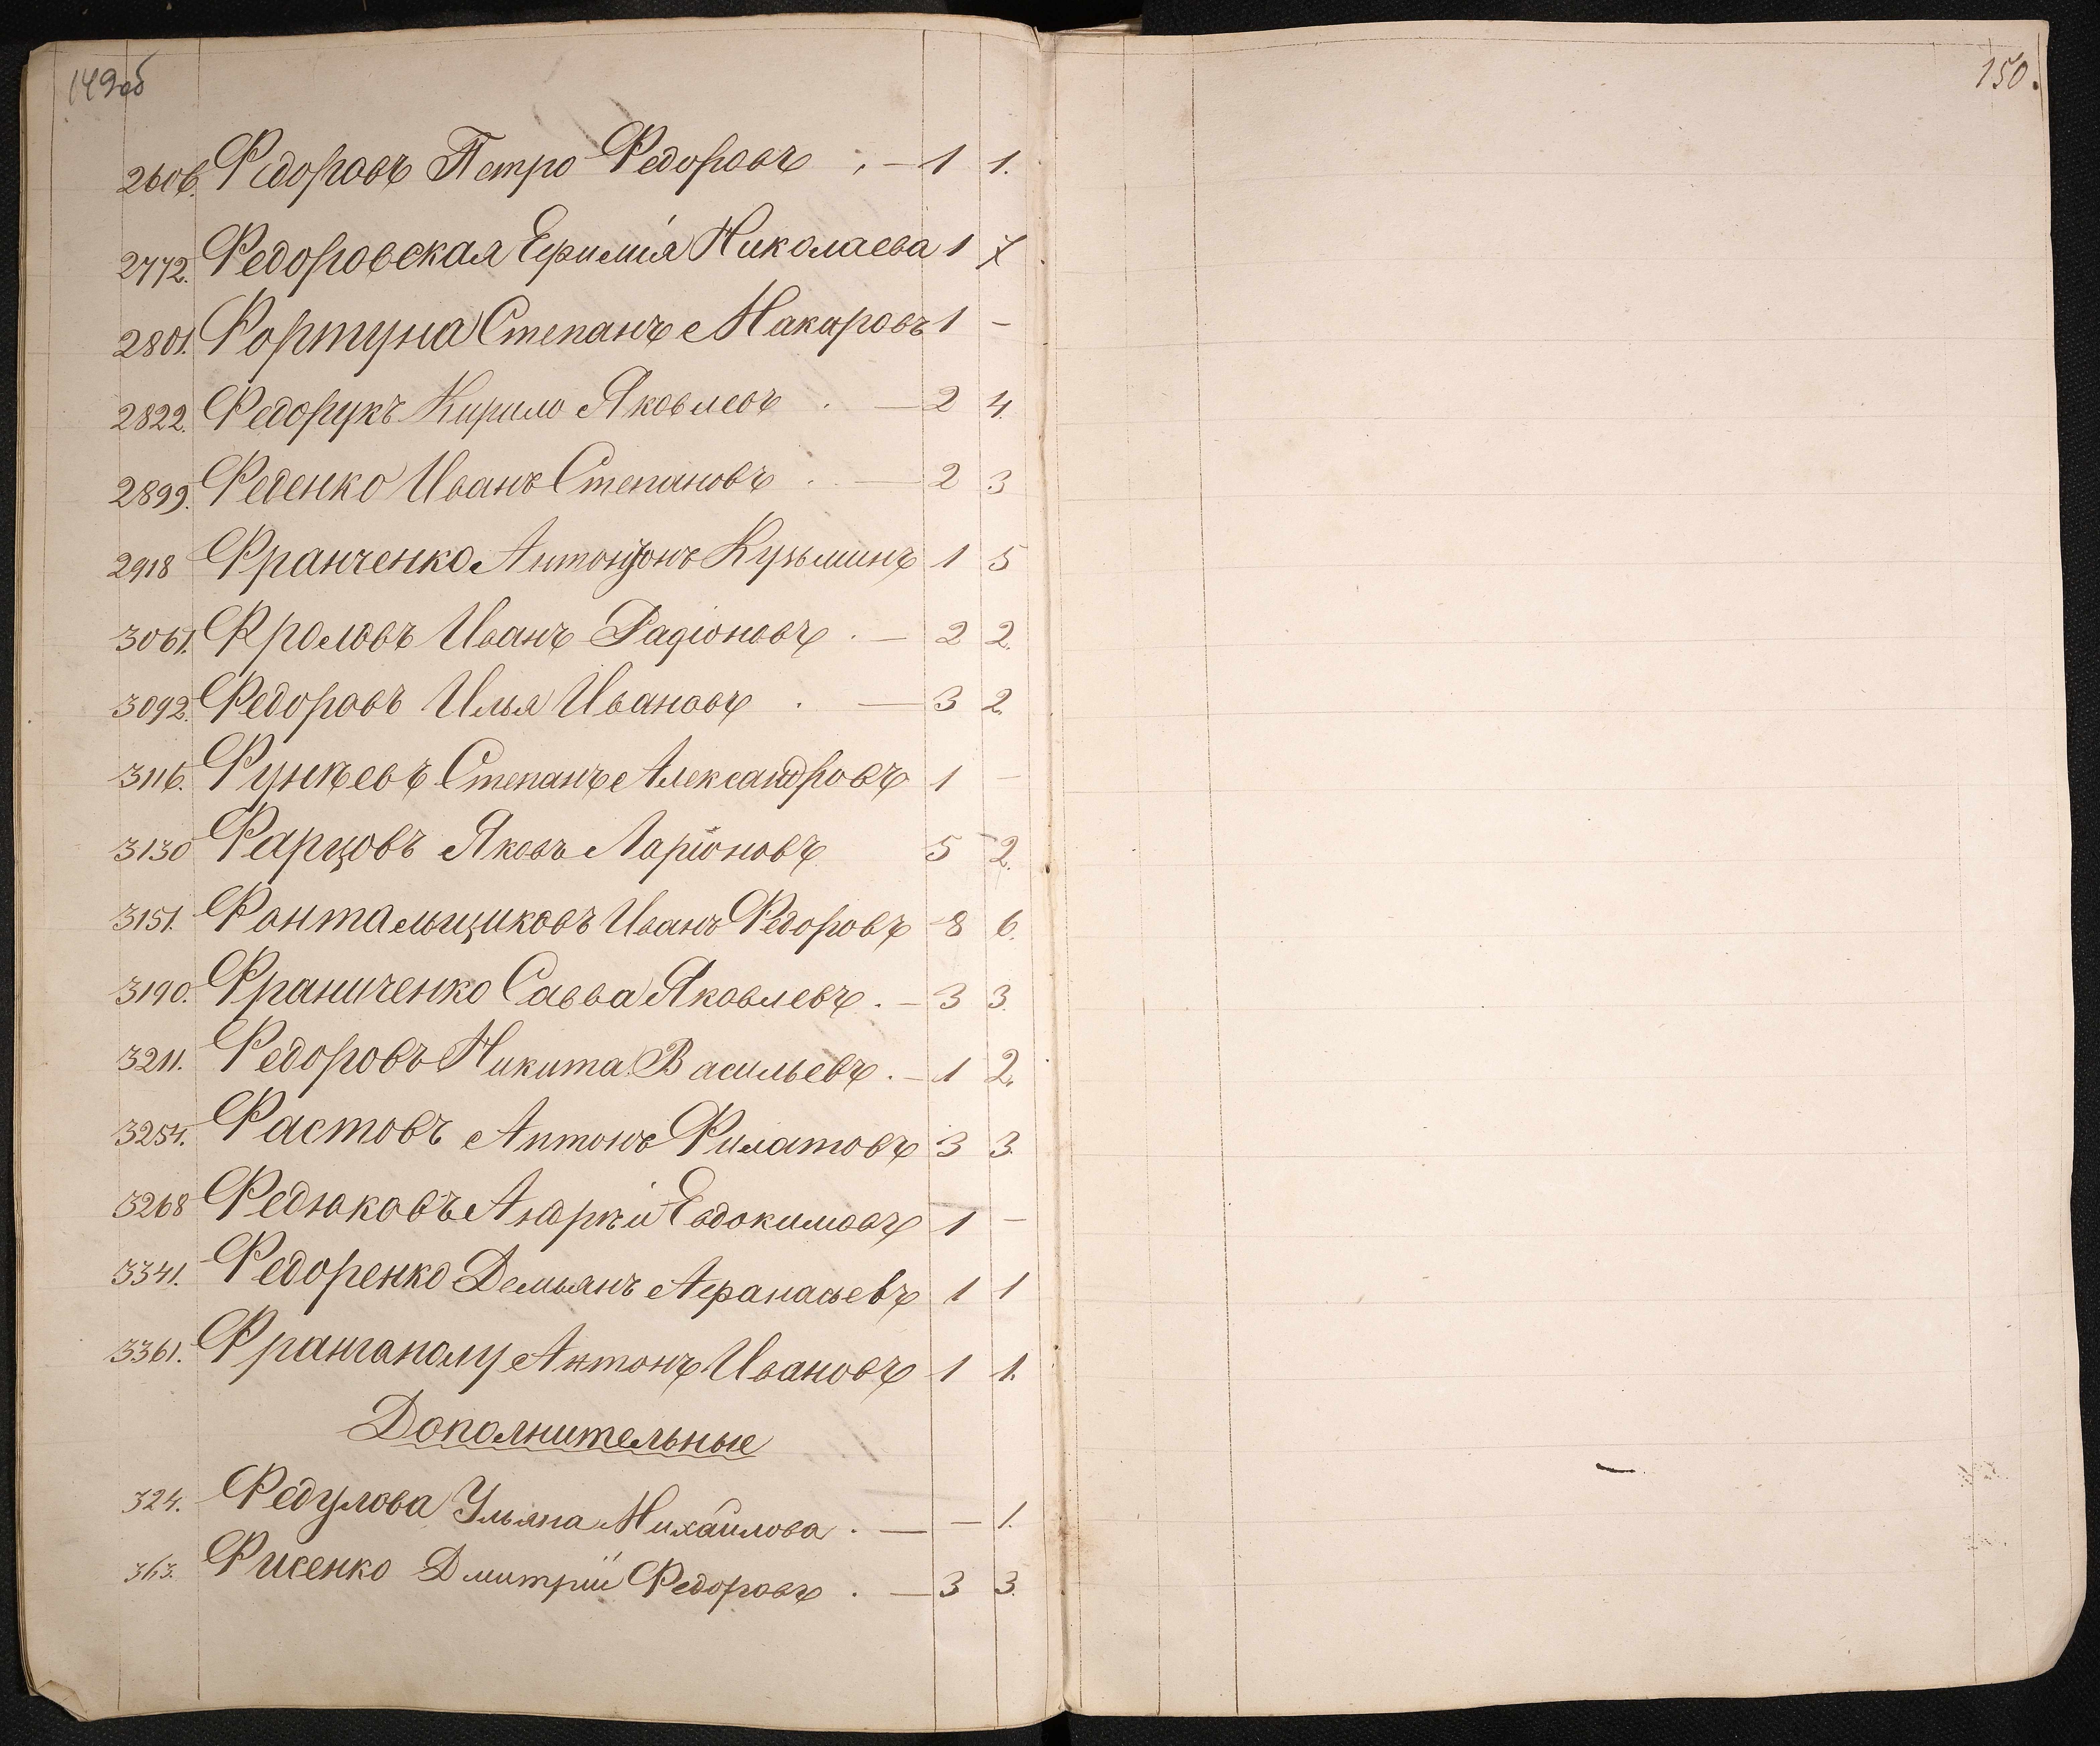 149об
150.
2606. Федоровъ Петро Федоровъ . — 1 1.
2772. Федоровская Ефимія Николаева 1 7
2801. Фортуна Степанъ Макаровъ 1 –
2822. Федорукъ Кирило Яковлевъ . — 2 4.
2899. Феденко Иванъ Степановъ . — 2 3
2918 Франченко Кузьминъ 1 5
3061. Фроловъ Иванъ Радіоновъ . — 2 2.
3092. Федоровъ Илья Ивановъ . — 3 2.
3116. Степанъ Александровъ 1 –
3130 Фарцовъ Яковъ Ларіоновъ 5 2.
3151. Фонтальщиковъ Иванъ Федоровъ 8 6.
3190. Франиченко Савва Яковлевъ . – 3 3.
3211. Федоровъ Никита Васильевъ . – 1 2.
3254. Фастовъ Антонъ Филатовъ 3 3.
3268 Федюковъ Андрѣй Евдокимовъ 1 –
3341. Федоренко Демьянъ Афанасьевъ 1 1
3361. Франгаполу Антонъ Ивановъ 1 1.
Дополнительные
324. Федулова Ульяна Михайлова . — – 1.
363. Фисенко Дмитрій Федоровъ . — 3 3.